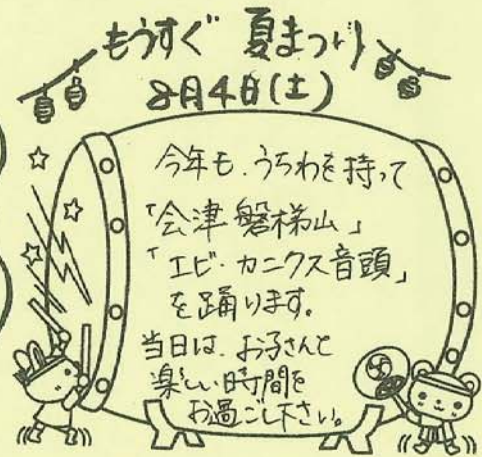 もうすぐ 夏まつり
8月4日(土)
今年も、うちわを持って
「会津磐梯山」
「エビ・カニクス音頭」
を踊ります。
当日は、お子さんと
楽しい時間を
お過ごし下さい。